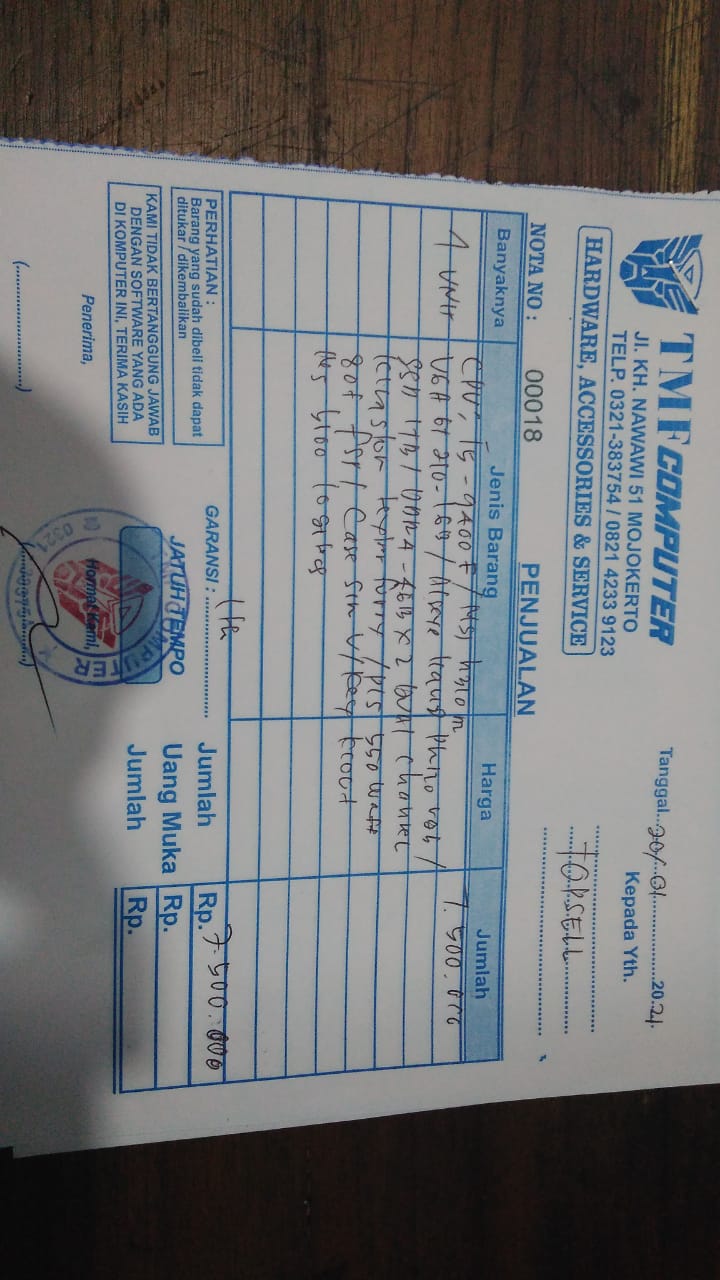 TMF COMPUTER
Jl. KH. NAWAWI 51 MOJOKERTO
TELP. 0321-383754 / 0821 4233 9123
HARDWARE, ACCESSORIES & SERVICE
Tanggal..20/.01..............2021.
Kepada Yth.
TOPSELL
NOTA NO : 00018
PENJUALAN
Banyaknya Jenis Barang Harga Jumlah
1 Unit CPU: i5-9400F / MSI H310m 7.500.000
VGA GT 210-1GB /
1TB / DDR4-4GB x 2 Dual Channel
/ 550 watt
80+ / Case Sim V / Key
Logitech
PERHATIAN :
Barang yang sudah dibeli tidak dapat
ditukar / dikembalikan
KAMI TIDAK BERTANGGUNG JAWAB
DENGAN SOFTWARE YANG ADA
DI KOMPUTER INI, TERIMA KASIH
GARANSI : 1 th
JATUH TEMPO
Jumlah Rp. 7.500.000
Uang Muka Rp.
Jumlah Rp.
Penerima,
Hormat Kami,
COMPUTER
0321